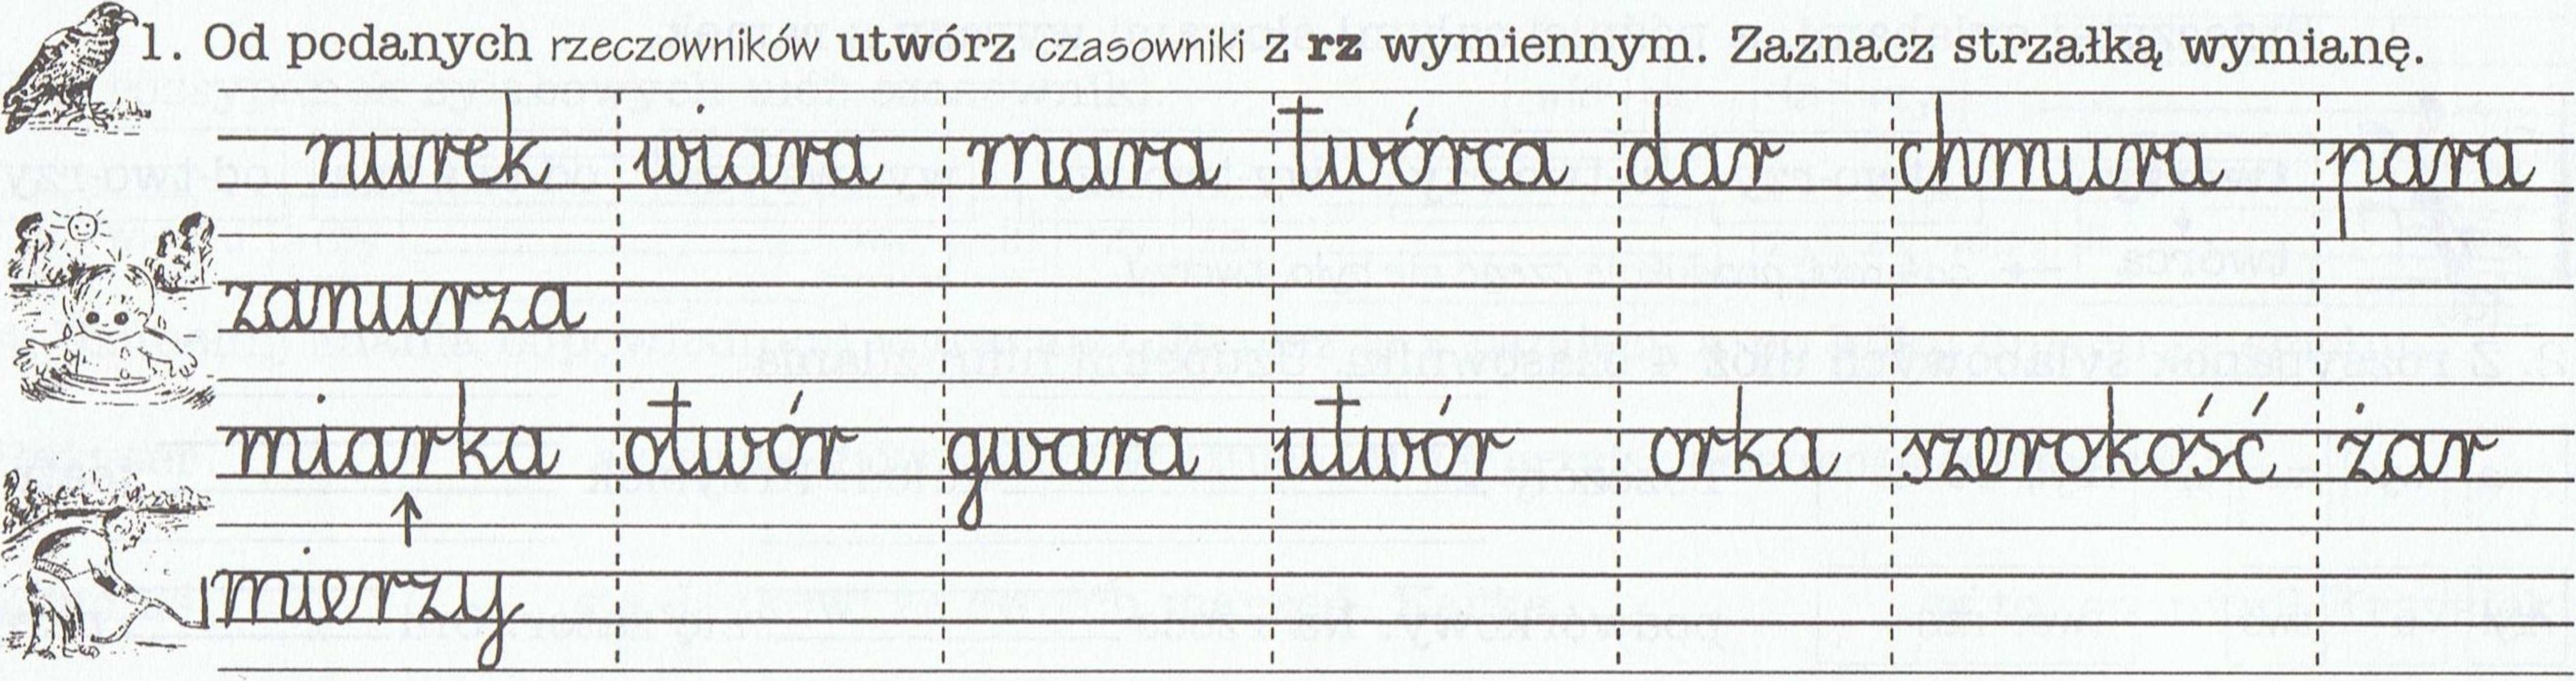 1. Od podanych rzeczowników utwórz czasowniki z rz wymiennym. Zaznacz strzałką wymianę.
nurek wiara mara twórca dar chmura para
zanurza
miarka otwór gwara utwór orka szerokość żar
↑
mierzy